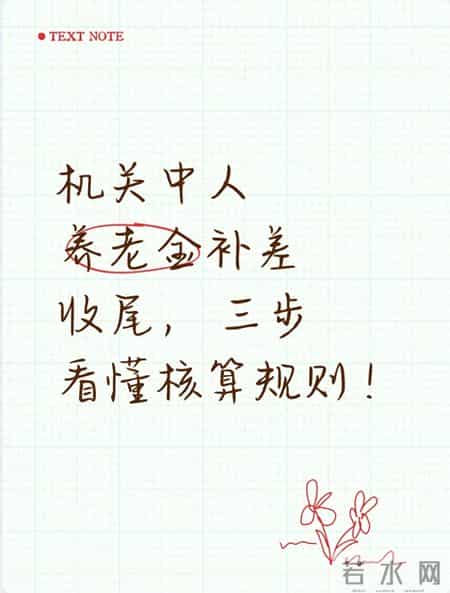 TEXT NOTE
机关中人
养老金补差
收尾，三步
看懂核算规则！
若水网